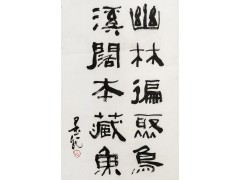 幽林徧聚鳥
溪闊本藏魚